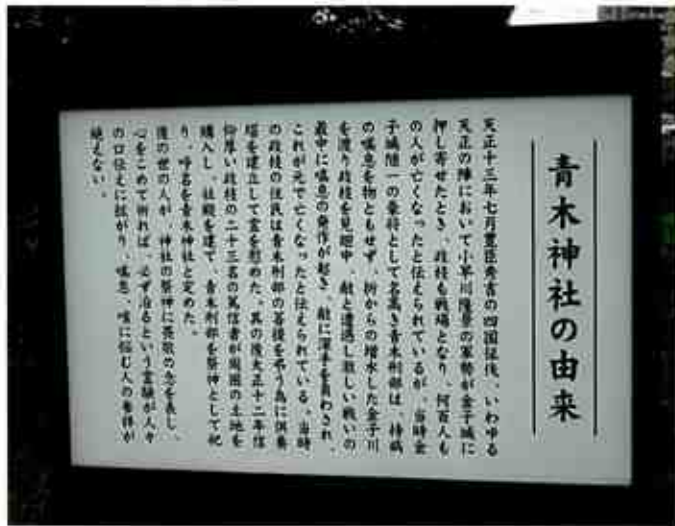 青木神社の由来
天正十三年七月豊臣秀吉の四国征伐、いわゆる
天正の陣において小早川隆景の軍勢が金子城に
押し寄せたとき、政枝も戦場となり、何百人も
の人が亡くなったと伝えられているが、当時金
子城随一の豪将として名高き青木刑部は、持病
の喘息を物ともせず、折からの増水した金子川
を渡り政枝を見廻中、敵と遭遇し激しい戦いの
最中に喘息の発作が起き、敵に深手を負わされ、
これが元で亡くなったと伝えられている。当時
の政枝の住民は青木刑部の菩提を弔う為に供養
塔を建立して霊を慰めた。其の後大正十二年信
仰厚い政枝の二十三名の篤信者が周囲の土地を
購入し、社殿を建て、青木刑部を祭神として祀
り、呼名を青木神社と定めた。
後の世の人が、神社の祭神に畏敬の念を表し、
心をこめて祈れば、必ず治るという霊験が人々
の口伝えに拡がり、喘息、咳に悩む人の参拝が
絶えない。